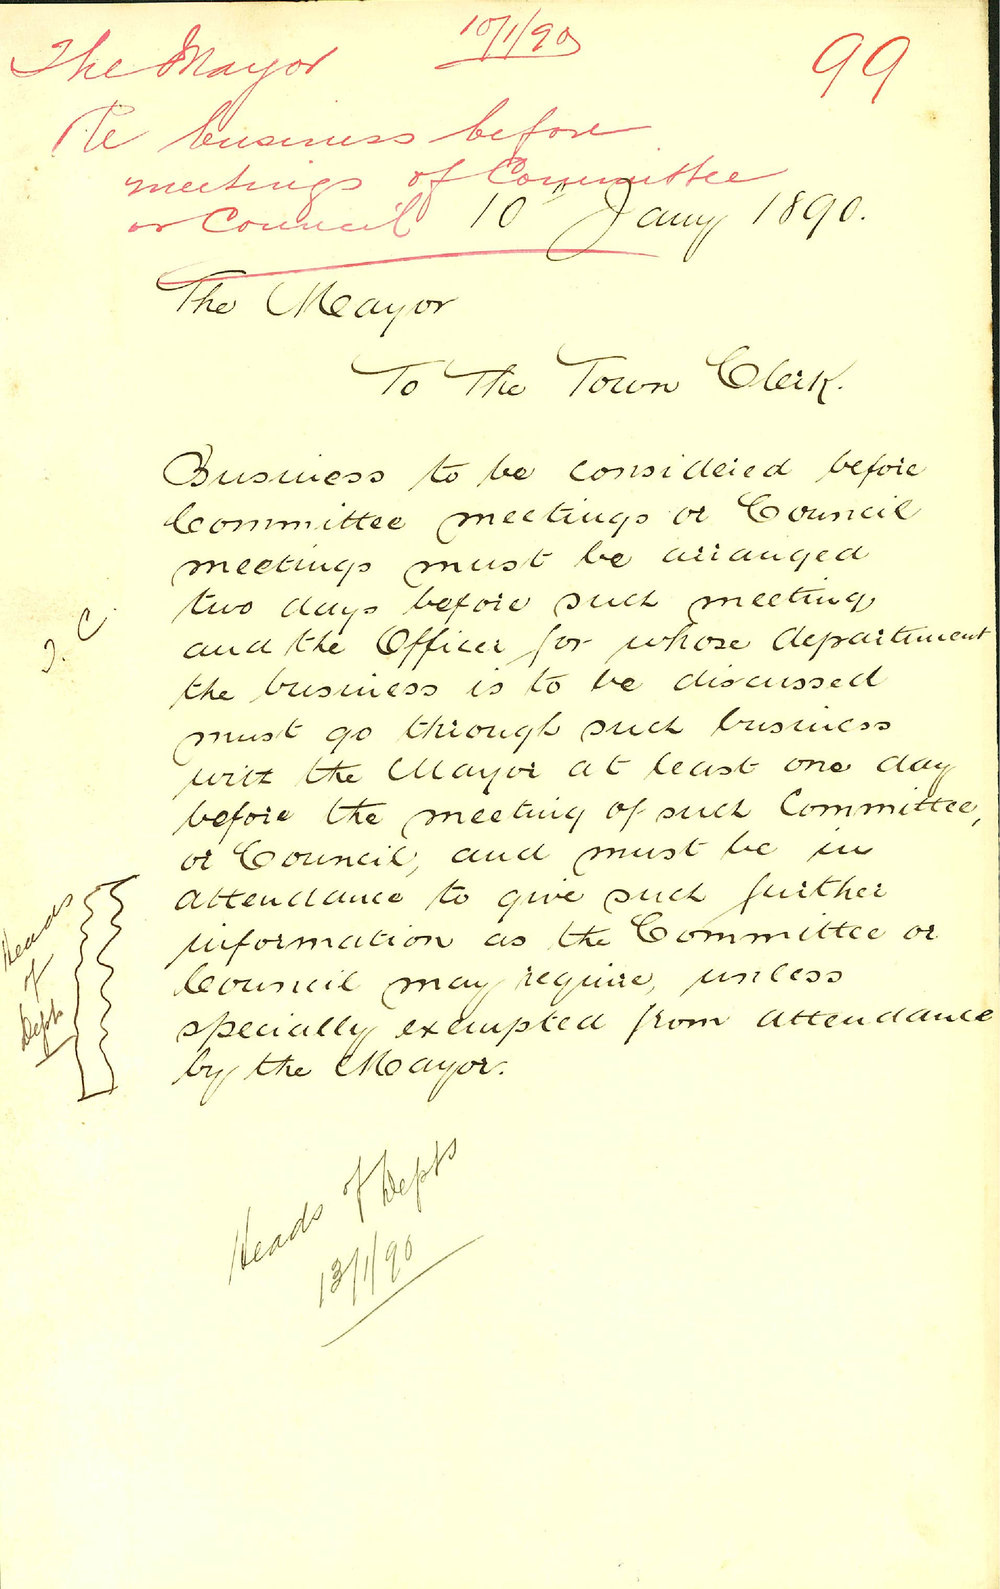 The Mayor 10/1/90 99
Re business before
meetings of Committee
or Council
10th Jany 1890.
The Mayor
To The Town Clerk.
Business to be considered before
Committee meetings or Council
meetings must be arranged
two days before such meeting
and the Officer for whose department
the business is to be discussed
must go through such business
with the Mayor at least one day
before the meeting of such Committee,
or Council, and must be in
attendance to give such further
information as the Committee or
Council may require, unless
specially exempted from attendance
by the Mayor.
T. C.
Heads
of
Depts
Heads of Depts
13/1/90